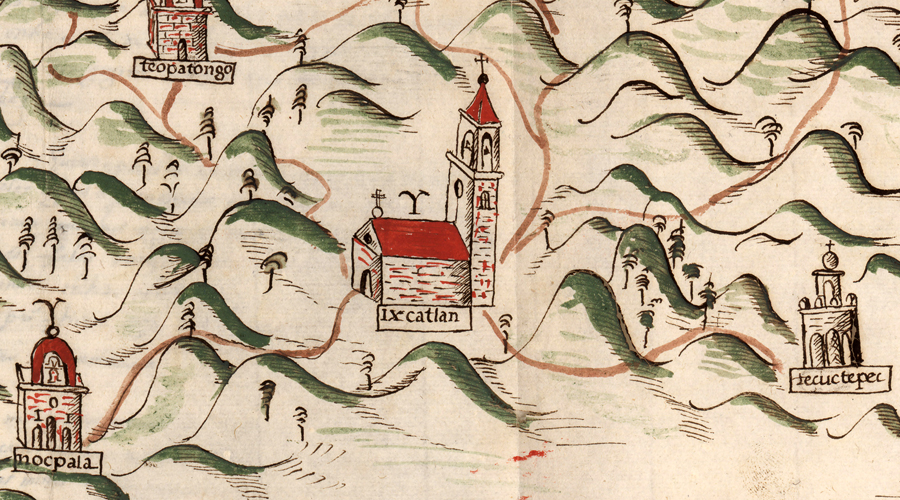 teopatongo
Ixcatlan
tecuctepec
nocpala